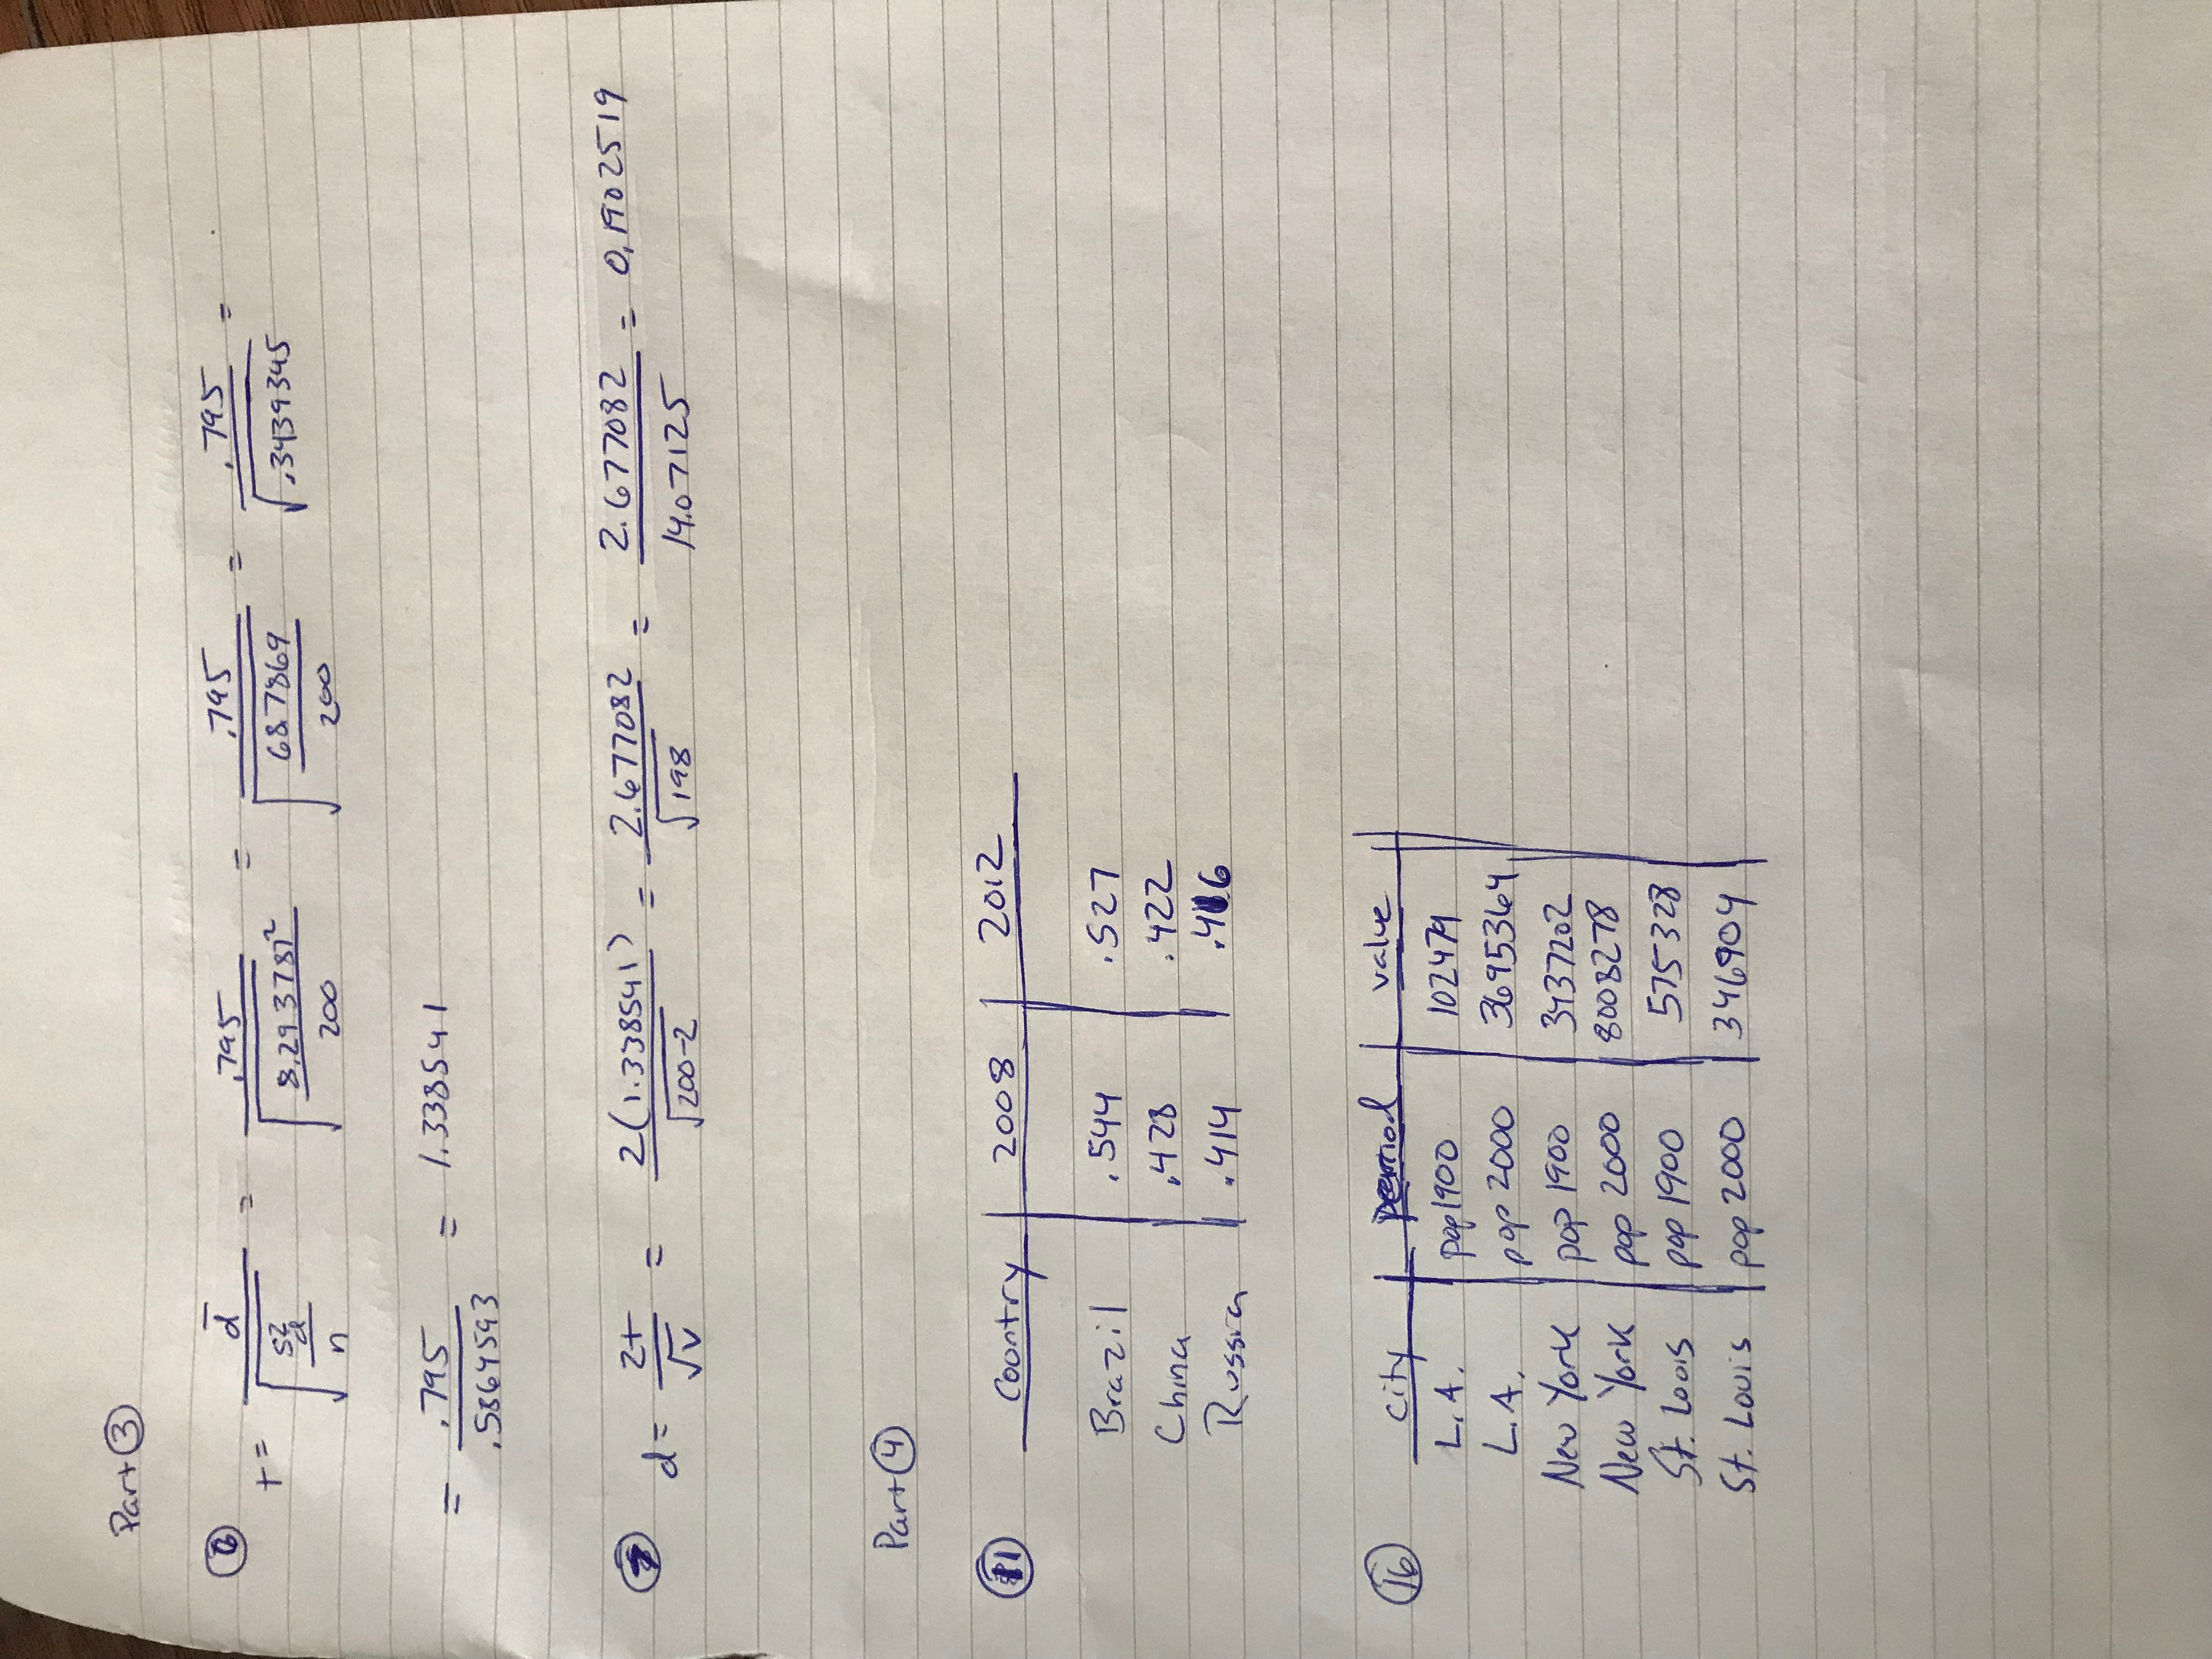 Part ③
⑥ t = d̄ / √(s²d / n) = .795 / √(8.293787² / 200) = .795 / √(68.7869 / 200) = .795 / √.3439345 =
= .795 / .5864593 = 1.338541
⑦ d = 2t / √v = 2(1.338541) / √200-2 = 2.677082 / √198 = 2.677082 / 14.07125 = 0.1902519
Part ④
⑪ Country | 2008 | 2012
Brazil | .544 | .527
China | .428 | .422
Russia | .414 | .416
⑯ City | period | value
L.A. | pop1900 | 102479
L.A. | pop 2000 | 3695364
New York | pop 1900 | 3437202
New York | pop 2000 | 8008278
St. Louis | pop 1900 | 575328
St. Louis | pop 2000 | 346904